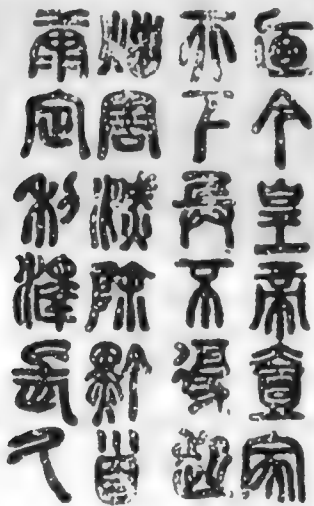 迺今皇帝壹家
天下兵不復起
災害滅除黔首
康定利澤長久